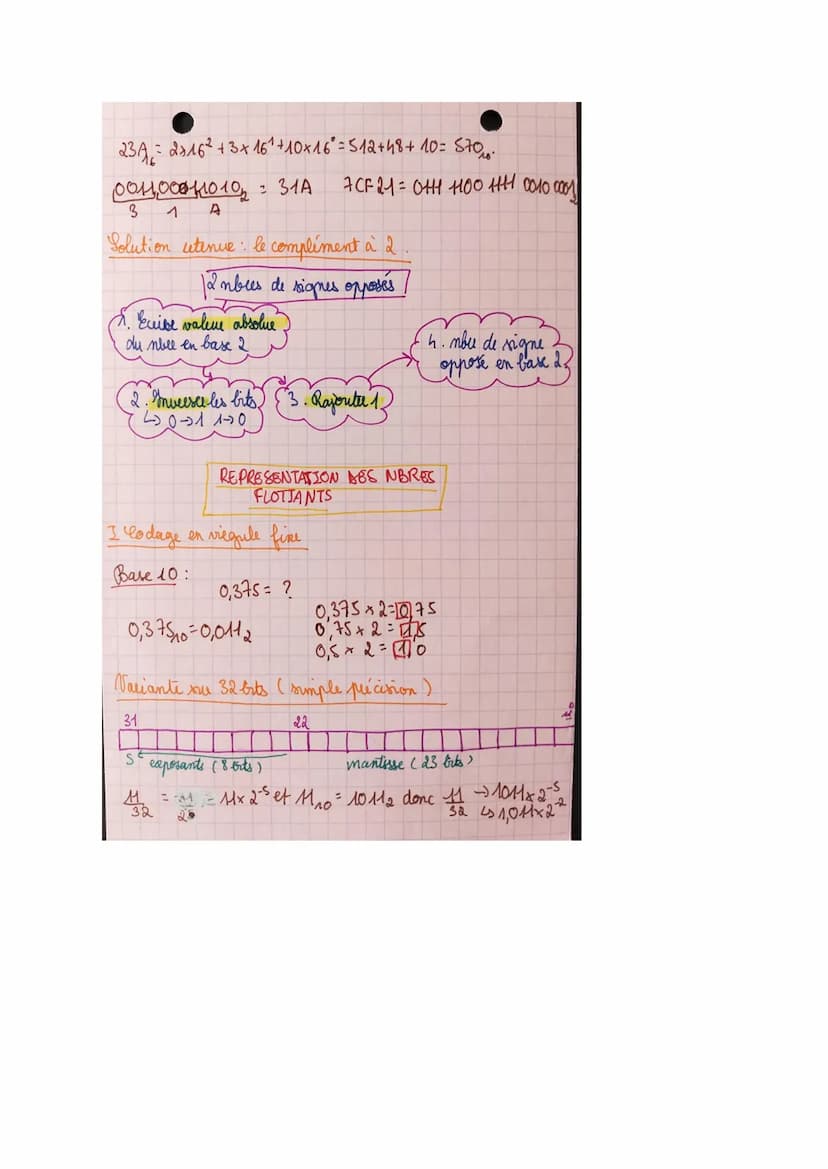 23A₁₆ = 2×16² + 3×16¹ + 10×16⁰ = 512 + 48 + 10 = 570₁₀.
0011 0001 1010₂ = 31A 7CF21 = 0111 1100 1111 0010 0001₂
3 1 A
Solution retenue : le complément à 2.
2 nbres de signes opposés
1. Ecrire valeur absolue
du nbre en base 2
2. Inverser les bits
↳ 0→1 1→0
3. Rajouter 1
4. nbre de signe
opposé en base 2
REPRESENTATION DES NBRES
FLOTTANTS
I Codage en virgule fixe
Base 10 :
0,375 = ?
0,375₁₀ = 0,011₂
0,375 × 2 = 0,75
0,75 × 2 = 1,5
0,5 × 2 = 1,0
Variante sur 32 bits (simple précision)
31 22
S exposants (8 bits) mantisse (23 bits)
11/32 = 11 × 2⁻⁵ et 11₁₀ = 1011₂ donc 11/32 → 1011 × 2⁻⁵
↳ 1,011 × 2⁻²